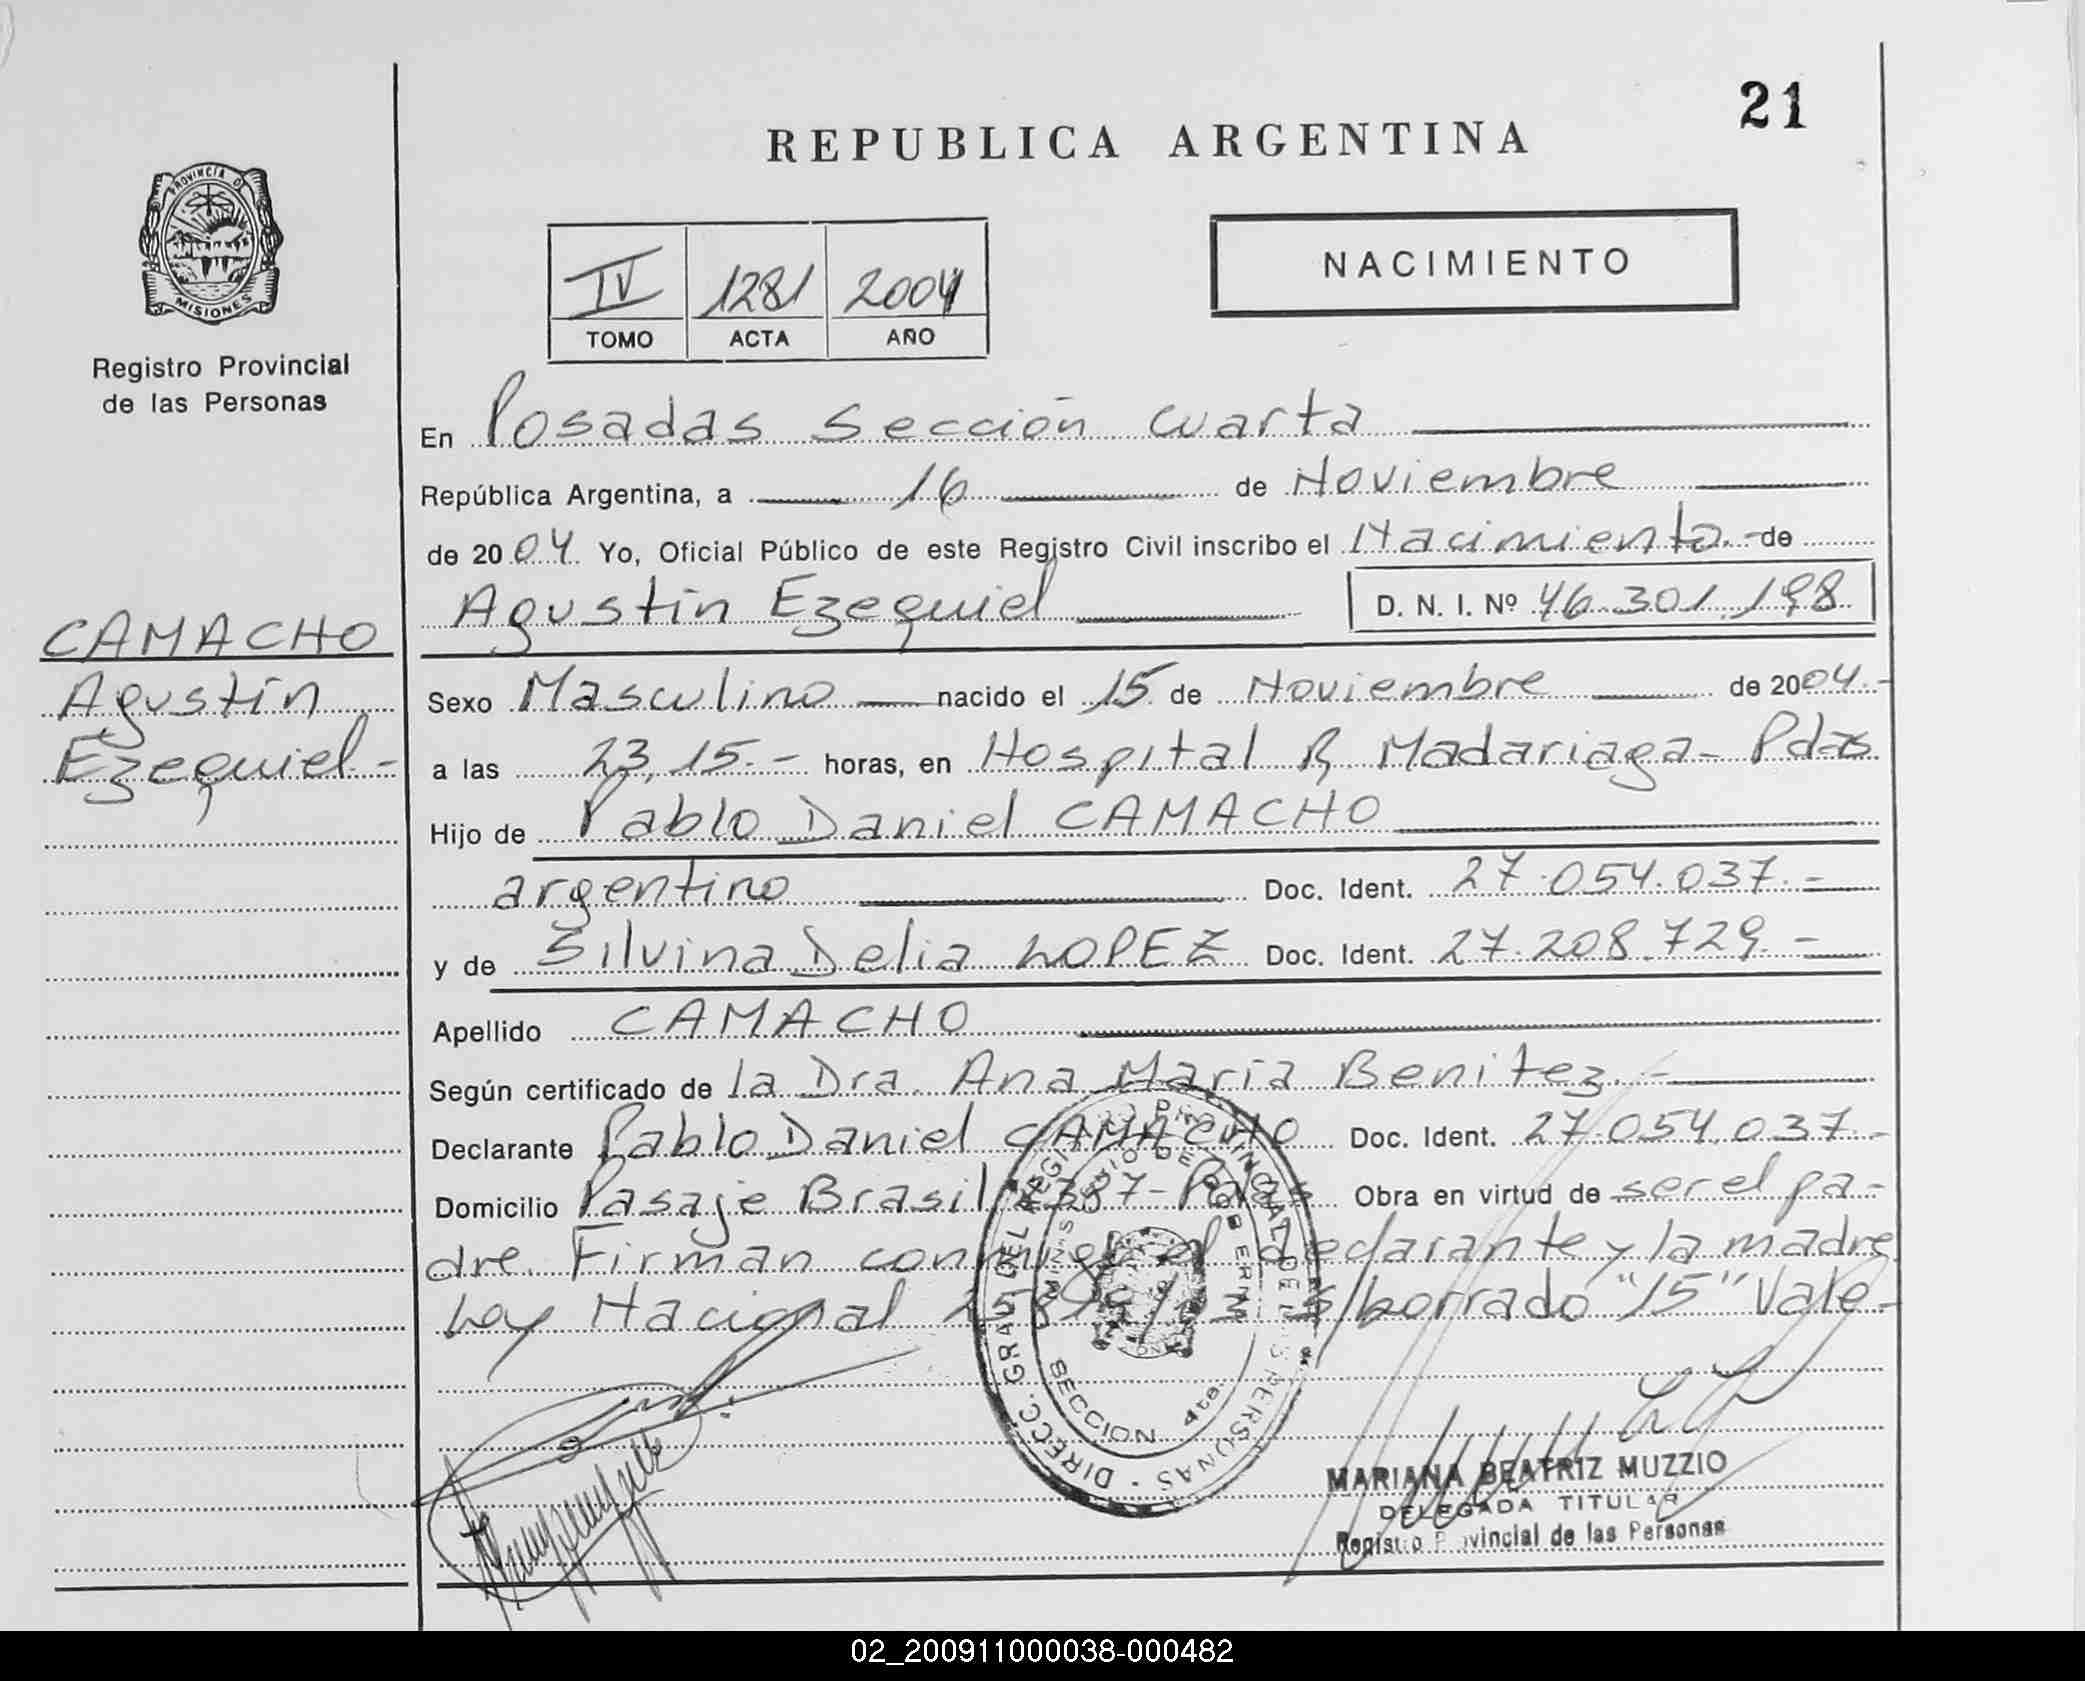 21
REPUBLICA ARGENTINA
PROVINCIA DE
MISIONES
Registro Provincial
de las Personas
IV 1281 2004
TOMO ACTA AÑO
NACIMIENTO
En Posadas Sección Cuarta
República Argentina, a 16 de Noviembre
de 2004. Yo, Oficial Público de este Registro Civil inscribo el Nacimiento.- de
Agustín Ezequiel D. N. I. Nº 46.301.198
CAMACHO
Agustín
Ezequiel -
Sexo Masculino nacido el 15 de Noviembre de 2004.-
a las 23,15.- horas, en Hospital R. Madariaga - Pdas
Hijo de Pablo Daniel CAMACHO
argentino Doc. Ident. 27.054.037.-
y de Silvina Delia LOPEZ Doc. Ident. 27.208.729.-
Apellido CAMACHO
Según certificado de la Dra. Ana María Benitez.-
Declarante Pablo Daniel CAMACHO Doc. Ident. 27.054.037.-
Domicilio Pasaje Brasil 2387 - Pdas Obra en virtud de ser el pa-
dre. Firman conmigo el declarante y la madre
Ley Nacional S/borrado "15" Vale-
DIRECC. GRAL. DEL REGISTRO PROVINCIAL DE LAS PERSONAS
MINISTERIO DE GOBIERNO
SECCION 4ta.
MARIANA BEATRIZ MUZZIO
DELEGADA TITULAR
Registro Provincial de las Personas
02_200911000038-000482